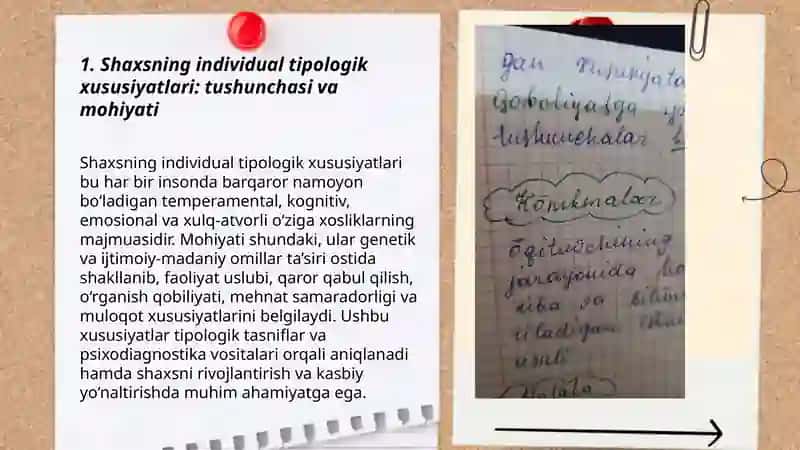 1. Shaxsning individual tipologik
xususiyatlari: tushunchasi va
mohiyati
Shaxsning individual tipologik xususiyatlari
bu har bir insonda barqaror namoyon
bo‘ladigan temperamental, kognitiv,
emosional va xulq-atvorli o‘ziga xosliklarning
majmuasidir. Mohiyati shundaki, ular genetik
va ijtimoiy-madaniy omillar ta’siri ostida
shakllanib, faoliyat uslubi, qaror qabul qilish,
o‘rganish qobiliyati, mehnat samaradorligi va
muloqot xususiyatlarini belgilaydi. Ushbu
xususiyatlar tipologik tasniflar va
psixodiagnostika vositalari orqali aniqlanadi
hamda shaxsni rivojlantirish va kasbiy
yo‘naltirishda muhim ahamiyatga ega.
gan
Qobolyatga
tushunchalar
Konikmalar
jarayonida
va